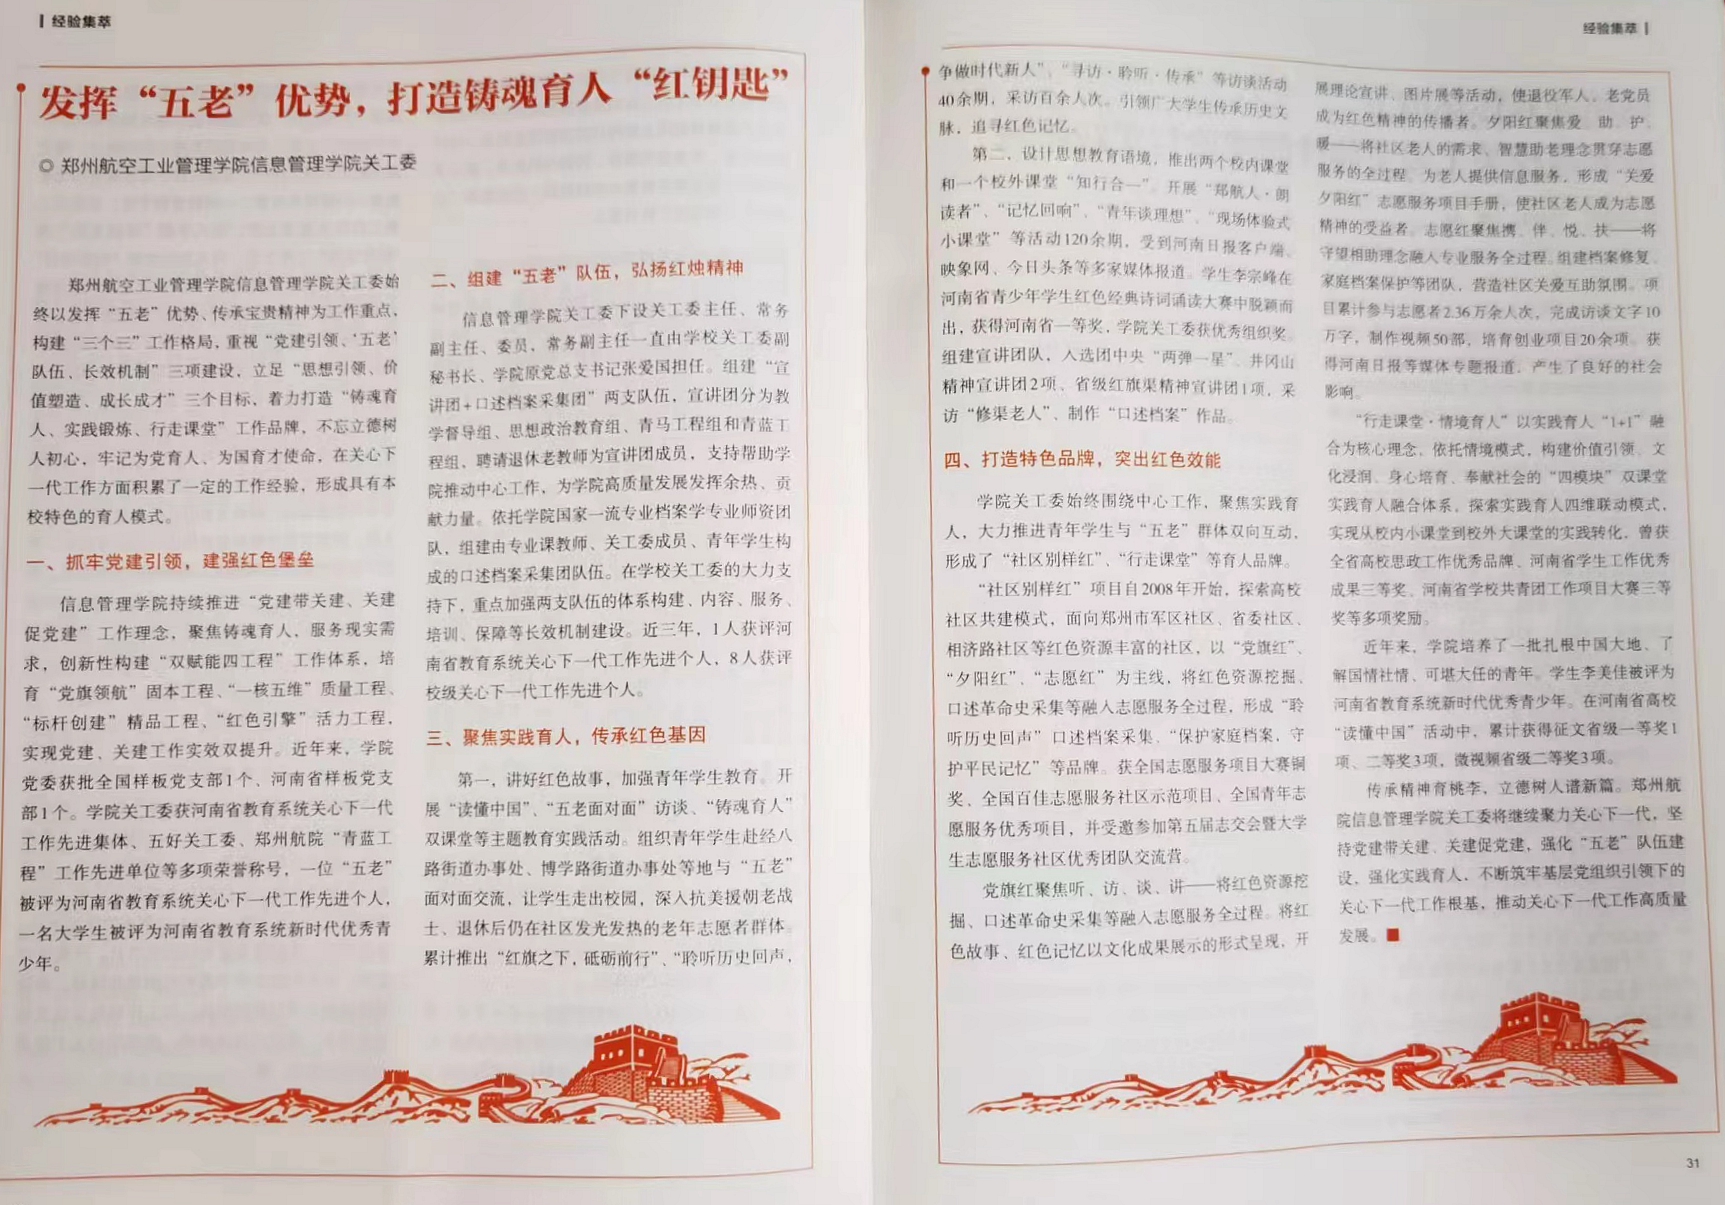 经验集萃
发挥“五老”优势，打造铸魂育人“红钥匙”
◎ 郑州航空工业管理学院信息管理学院关工委
郑州航空工业管理学院信息管理学院关工委始
终以发挥“五老”优势、传承宝贵精神为工作重点，
构建“三个三”工作格局，重视“党建引领、‘五老’
队伍、长效机制”三项建设，立足“思想引领、价
值塑造、成长成才”三个目标，着力打造“铸魂育
人、实践锻炼、行走课堂”工作品牌，不忘立德树
人初心，牢记为党育人、为国育才使命，在关心下
一代工作方面积累了一定的工作经验，形成具有本
校特色的育人模式。
一、抓牢党建引领，建强红色堡垒
信息管理学院持续推进“党建带关建、关建
促党建”工作理念，聚焦铸魂育人，服务现实需
求，创新性构建“双赋能四工程”工作体系，培
育“党旗领航”固本工程、“一核五维”质量工程、
“标杆创建”精品工程、“红色引擎”活力工程，
实现党建、关建工作实效双提升。近年来，学院
党委获批全国样板党支部1个、河南省样板党支
部1个。学院关工委获河南省教育系统关心下一代
工作先进集体、五好关工委、郑州航院“青蓝工
程”工作先进单位等多项荣誉称号，一位“五老”
被评为河南省教育系统关心下一代工作先进个人，
一名大学生被评为河南省教育系统新时代优秀青
少年。
二、组建“五老”队伍，弘扬红烛精神
信息管理学院关工委下设关工委主任、常务
副主任、委员，常务副主任一直由学校关工委副
秘书长、学院原党总支书记张爱国担任。组建“宣
讲团+口述档案采集团”两支队伍，宣讲团分为教
学督导组、思想政治教育组、青马工程组和青蓝工
程组，聘请退休老教师为宣讲团成员，支持帮助学
院推动中心工作，为学院高质量发展发挥余热、贡
献力量。依托学院国家一流专业档案学专业师资团
队，组建由专业课教师、关工委成员、青年学生构
成的口述档案采集团队伍。在学校关工委的大力支
持下，重点加强两支队伍的体系构建、内容、服务、
培训、保障等长效机制建设。近三年，1人获评河
南省教育系统关心下一代工作先进个人，8人获评
校级关心下一代工作先进个人。
三、聚焦实践育人，传承红色基因
第一，讲好红色故事，加强青年学生教育。开
展“读懂中国”、“五老面对面”访谈、“铸魂育人”
双课堂等主题教育实践活动。组织青年学生赴经八
路街道办事处、博学路街道办事处等地与“五老”
面对面交流，让学生走出校园，深入抗美援朝老战
士、退休后仍在社区发光发热的老年志愿者群体。
累计推出“红旗之下，砥砺前行”、“聆听历史回声，
经验集萃
争做时代新人”，“寻访·聆听·传承”等访谈活动
40余期，采访百余人次。引领广大学生传承历史文
脉，追寻红色记忆。
第二，设计思想教育语境，推出两个校内课堂
和一个校外课堂“知行合一”。开展“郑航人·朗
读者”、“记忆回响”、“青年谈理想”、“现场体验式
小课堂”等活动120余期，受到河南日报客户端、
映象网、今日头条等多家媒体报道。学生李宗峰在
河南省青少年学生红色经典诗词诵读大赛中脱颖而
出，获得河南省一等奖，学院关工委获优秀组织奖。
组建宣讲团队，入选团中央“两弹一星”、井冈山
精神宣讲团2项、省级红旗渠精神宣讲团1项，采
访“修渠老人”、制作“口述档案”作品。
四、打造特色品牌，突出红色效能
学院关工委始终围绕中心工作，聚焦实践育
人，大力推进青年学生与“五老”群体双向互动，
形成了“社区别样红”、“行走课堂”等育人品牌。
“社区别样红”项目自2008年开始，探索高校
社区共建模式，面向郑州市军区社区、省委社区、
相济路社区等红色资源丰富的社区，以“党旗红”、
“夕阳红”、“志愿红”为主线，将红色资源挖掘、
口述革命史采集等融入志愿服务全过程，形成“聆
听历史回声”口述档案采集、“保护家庭档案，守
护平民记忆”等品牌。获全国志愿服务项目大赛铜
奖、全国百佳志愿服务社区示范项目、全国青年志
愿服务优秀项目，并受邀参加第五届志交会暨大学
生志愿服务社区优秀团队交流营。
党旗红聚焦听、访、谈、讲——将红色资源挖
掘、口述革命史采集等融入志愿服务全过程。将红
色故事、红色记忆以文化成果展示的形式呈现，开
展理论宣讲、图片展等活动，使退役军人、老党员
成为红色精神的传播者。夕阳红聚焦爱、助、护、
暖——将社区老人的需求、智慧助老理念贯穿志愿
服务的全过程。为老人提供信息服务，形成“关爱
夕阳红”志愿服务项目手册，使社区老人成为志愿
精神的受益者。志愿红聚焦携、伴、悦、扶——将
守望相助理念融入专业服务全过程。组建档案修复、
家庭档案保护等团队，营造社区关爱互助氛围。项
目累计参与志愿者2.36万余人次，完成访谈文字10
万字，制作视频50部，培育创业项目20余项。获
得河南日报等媒体专题报道，产生了良好的社会
影响。
“行走课堂·情境育人”以实践育人“1+1”融
合为核心理念，依托情境模式，构建价值引领、文
化浸润、身心培育、奉献社会的“四模块”双课堂
实践育人融合体系，探索实践育人四维联动模式，
实现从校内小课堂到校外大课堂的实践转化，曾获
全省高校思政工作优秀品牌、河南省学生工作优秀
成果三等奖、河南省学校共青团工作项目大赛三等
奖等多项奖励。
近年来，学院培养了一批扎根中国大地、了
解国情社情、可堪大任的青年。学生李美佳被评为
河南省教育系统新时代优秀青少年。在河南省高校
“读懂中国”活动中，累计获得征文省级一等奖1
项、二等奖3项，微视频省级二等奖3项。
传承精神育桃李，立德树人谱新篇。郑州航
院信息管理学院关工委将继续聚力关心下一代，坚
持党建带关建、关建促党建，强化“五老”队伍建
设，强化实践育人，不断筑牢基层党组织引领下的
关心下一代工作根基，推动关心下一代工作高质量
发展。■
31